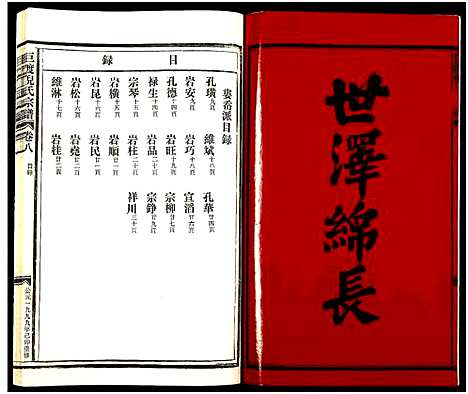 世澤綿長
目錄
婁希派目錄
孔璜 十五頁 維斌 十八頁 孔華 廿四頁
岩安 九頁 岩巧 十六頁 宣滔 廿六頁
孔德 十四頁 岩旺 十九頁 宗柳 廿七頁
祿生 十四頁 岩品 二十頁 宗錚 廿九頁
宗琴 十五頁 岩柱 二十頁 祥川 三十頁
岩橫 十六頁 岩順 廿一頁
岩昆 十六頁 岩民 廿一頁
岩松 十六頁 岩堯 廿二頁
維淋 十七頁 岩桂 廿三頁
倪氏宗譜 卷八 目錄
公元一九九九年己卯重修